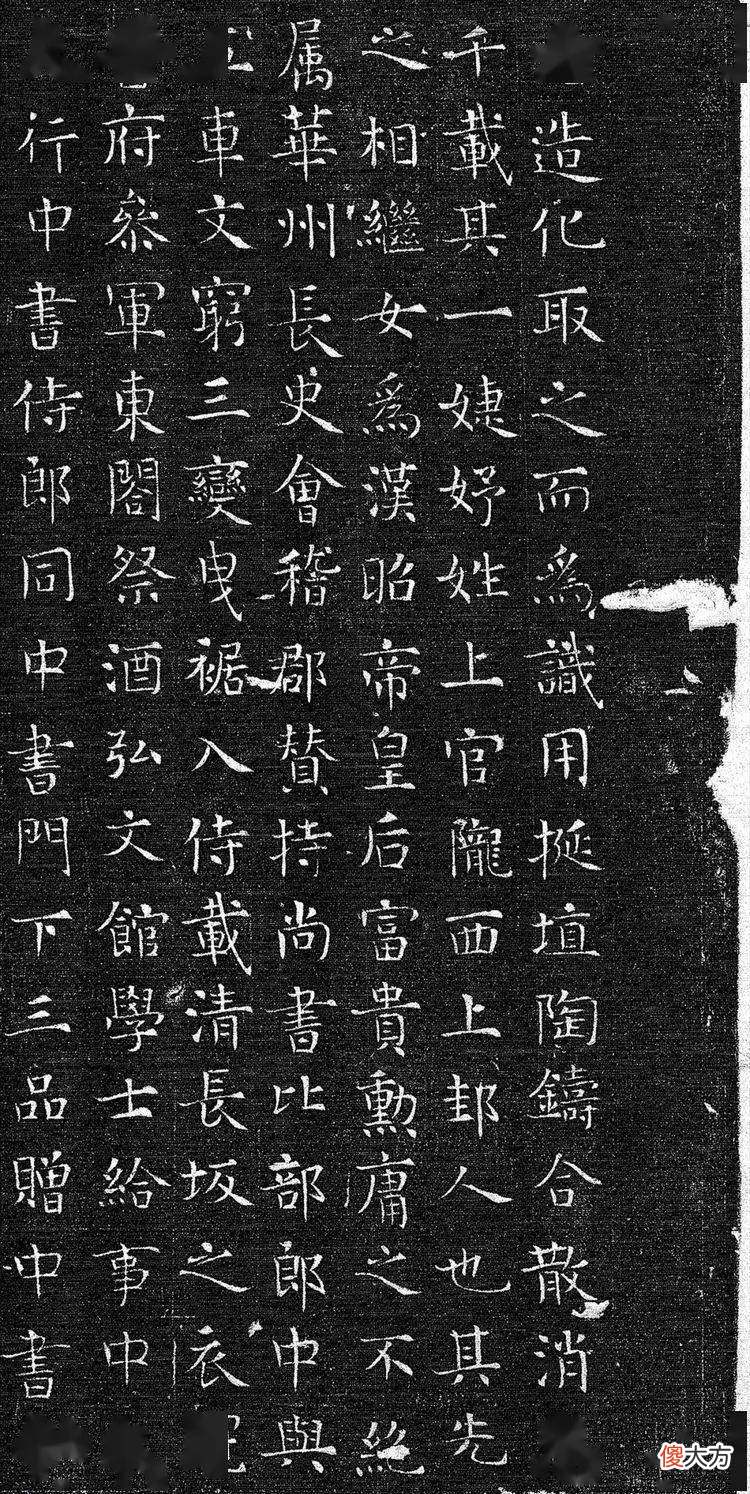 造化取之而爲識用挻埴陶鑄合散消
千載其一婕妤姓上官隴西上邽人也其先
之相繼女爲漢昭帝皇后富貴勳庸之不絕
属華州長史會稽郡贊持尚書比部郎中與
車文窮三變曳裾入侍載清長坂之衣
府叅軍東閤祭酒弘文館學士給事中
行中書侍郎同中書門下三品贈中書
傻大方